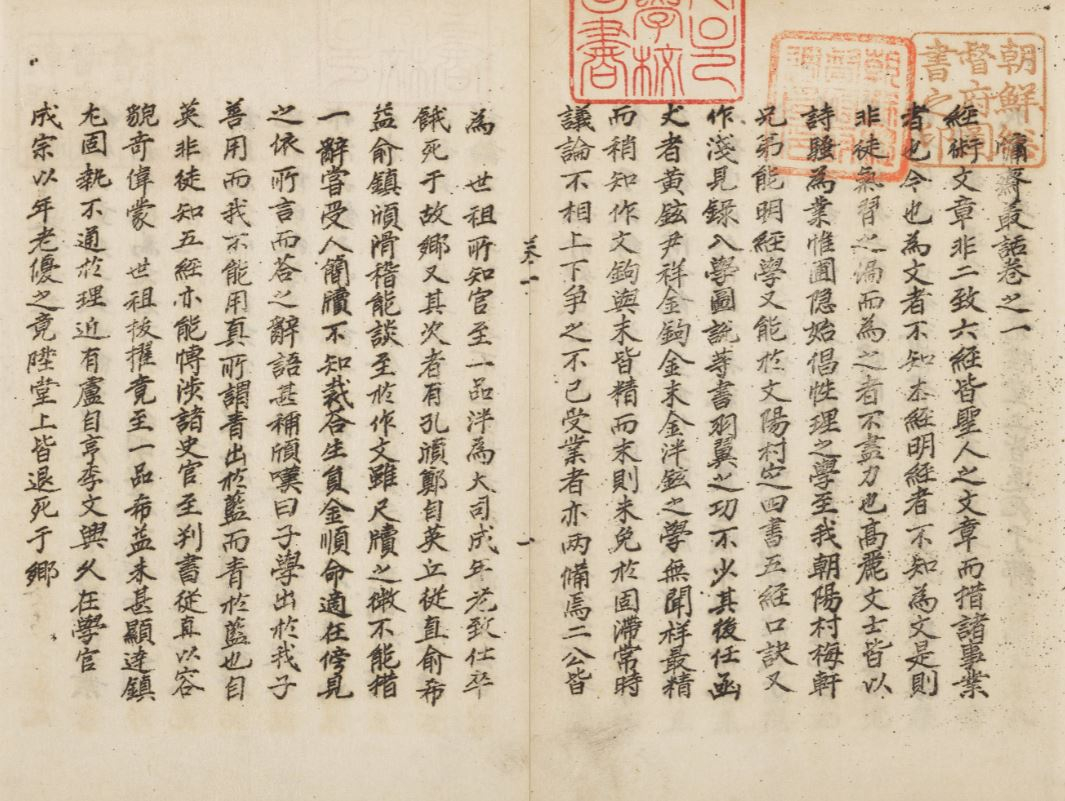 朝鮮總
督府圖
書之印
慵齋叢話卷之一
經術文章非二致六經皆聖人之文章而措諸事業
者也今也為文者不知本經明經者不知為文是則
非徒氣習之偏而為之者不盡力也高麗文士皆以
詩騷為業惟圃隱始倡性理之學至我朝陽村梅軒
兄弟能明經學又能於文陽村定四書五經口訣又
作淺見錄入學圖說等書羽翼之功不少其後任函
丈者黃鉉尹祥金鉤金末金泮鉉之學無聞祥最精
而稍知作文鉤與末皆精而末則未免於固滯常時
議論不相上下爭之不已受業者亦兩備焉二公皆
卷一
一
為 世祖所知官至一品泮為大司成年老致仕卒
餓死于故鄉又其次者有孔頎鄭自英丘從直俞希
益俞鎮頎滑稽能談至於作文雖尺牘之微不能措
一辭嘗受人簡牘不知裁答生員金順命適在傍見
之依所言而答之辭語甚稱頎嘆曰子學出於我子
善用而我不能用真所謂青出於藍而青於藍也自
英非徒知五經亦能博涉諸史官至判書從直以容
貌奇偉蒙 世祖拔擢竟至一品希益未甚顯達鎮
尤固執不通於理近有盧自亨李文興久在學官
成宗以年老優之竟陞堂上皆退死于鄉